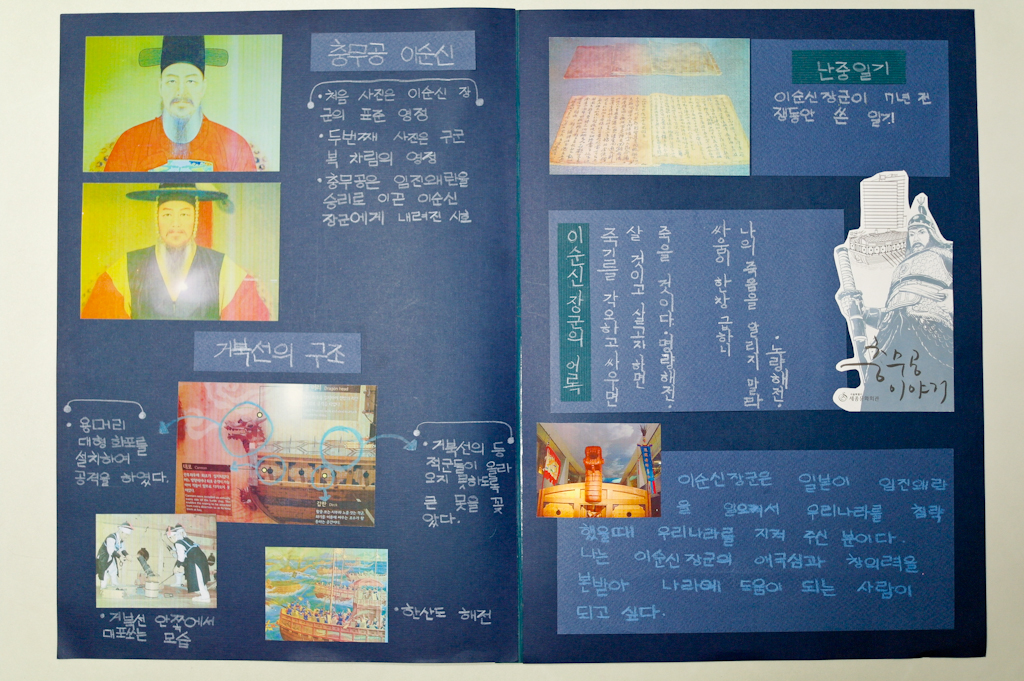 충무공 이순신
· 처음 사진은 이순신 장
군의 표준 영정
· 두번째 사진은 구군
복 차림의 영정
· 충무공은 임진왜란을
승리로 이끈 이순신
장군에게 내려진 시호
거북선의 구조
· 용머리
대형 화포를
설치하여
공격을 하였다.
Dragon head
대포 Cannon
갑판 Deck
· 거북선의 등
적군들이 올라
오지 못하도록
큰 못을 꽂
았다.
· 거북선 안쪽에서
대포쏘는 모습
· 한산도 해전
난중일기
이순신장군이 7년 전
쟁동안 쓴 일기
이순신장군의 어록
죽기를 각오하고 싸우면
살 것이고 살고자 하면
죽을 것이다. · 명량해전 ·
싸움이 한창 급하니
나의 죽음을 알리지 말라
· 노량해전 ·
충무공
이야기
세종문화회관
이순신장군은 일본이 임진왜란
을 일으켜서 우리나라를 침략
했을때 우리나라를 지켜 주신 분이다.
나는 이순신장군의 애국심과 창의력을
본받아 나라에 도움이 되는 사람이
되고 싶다.